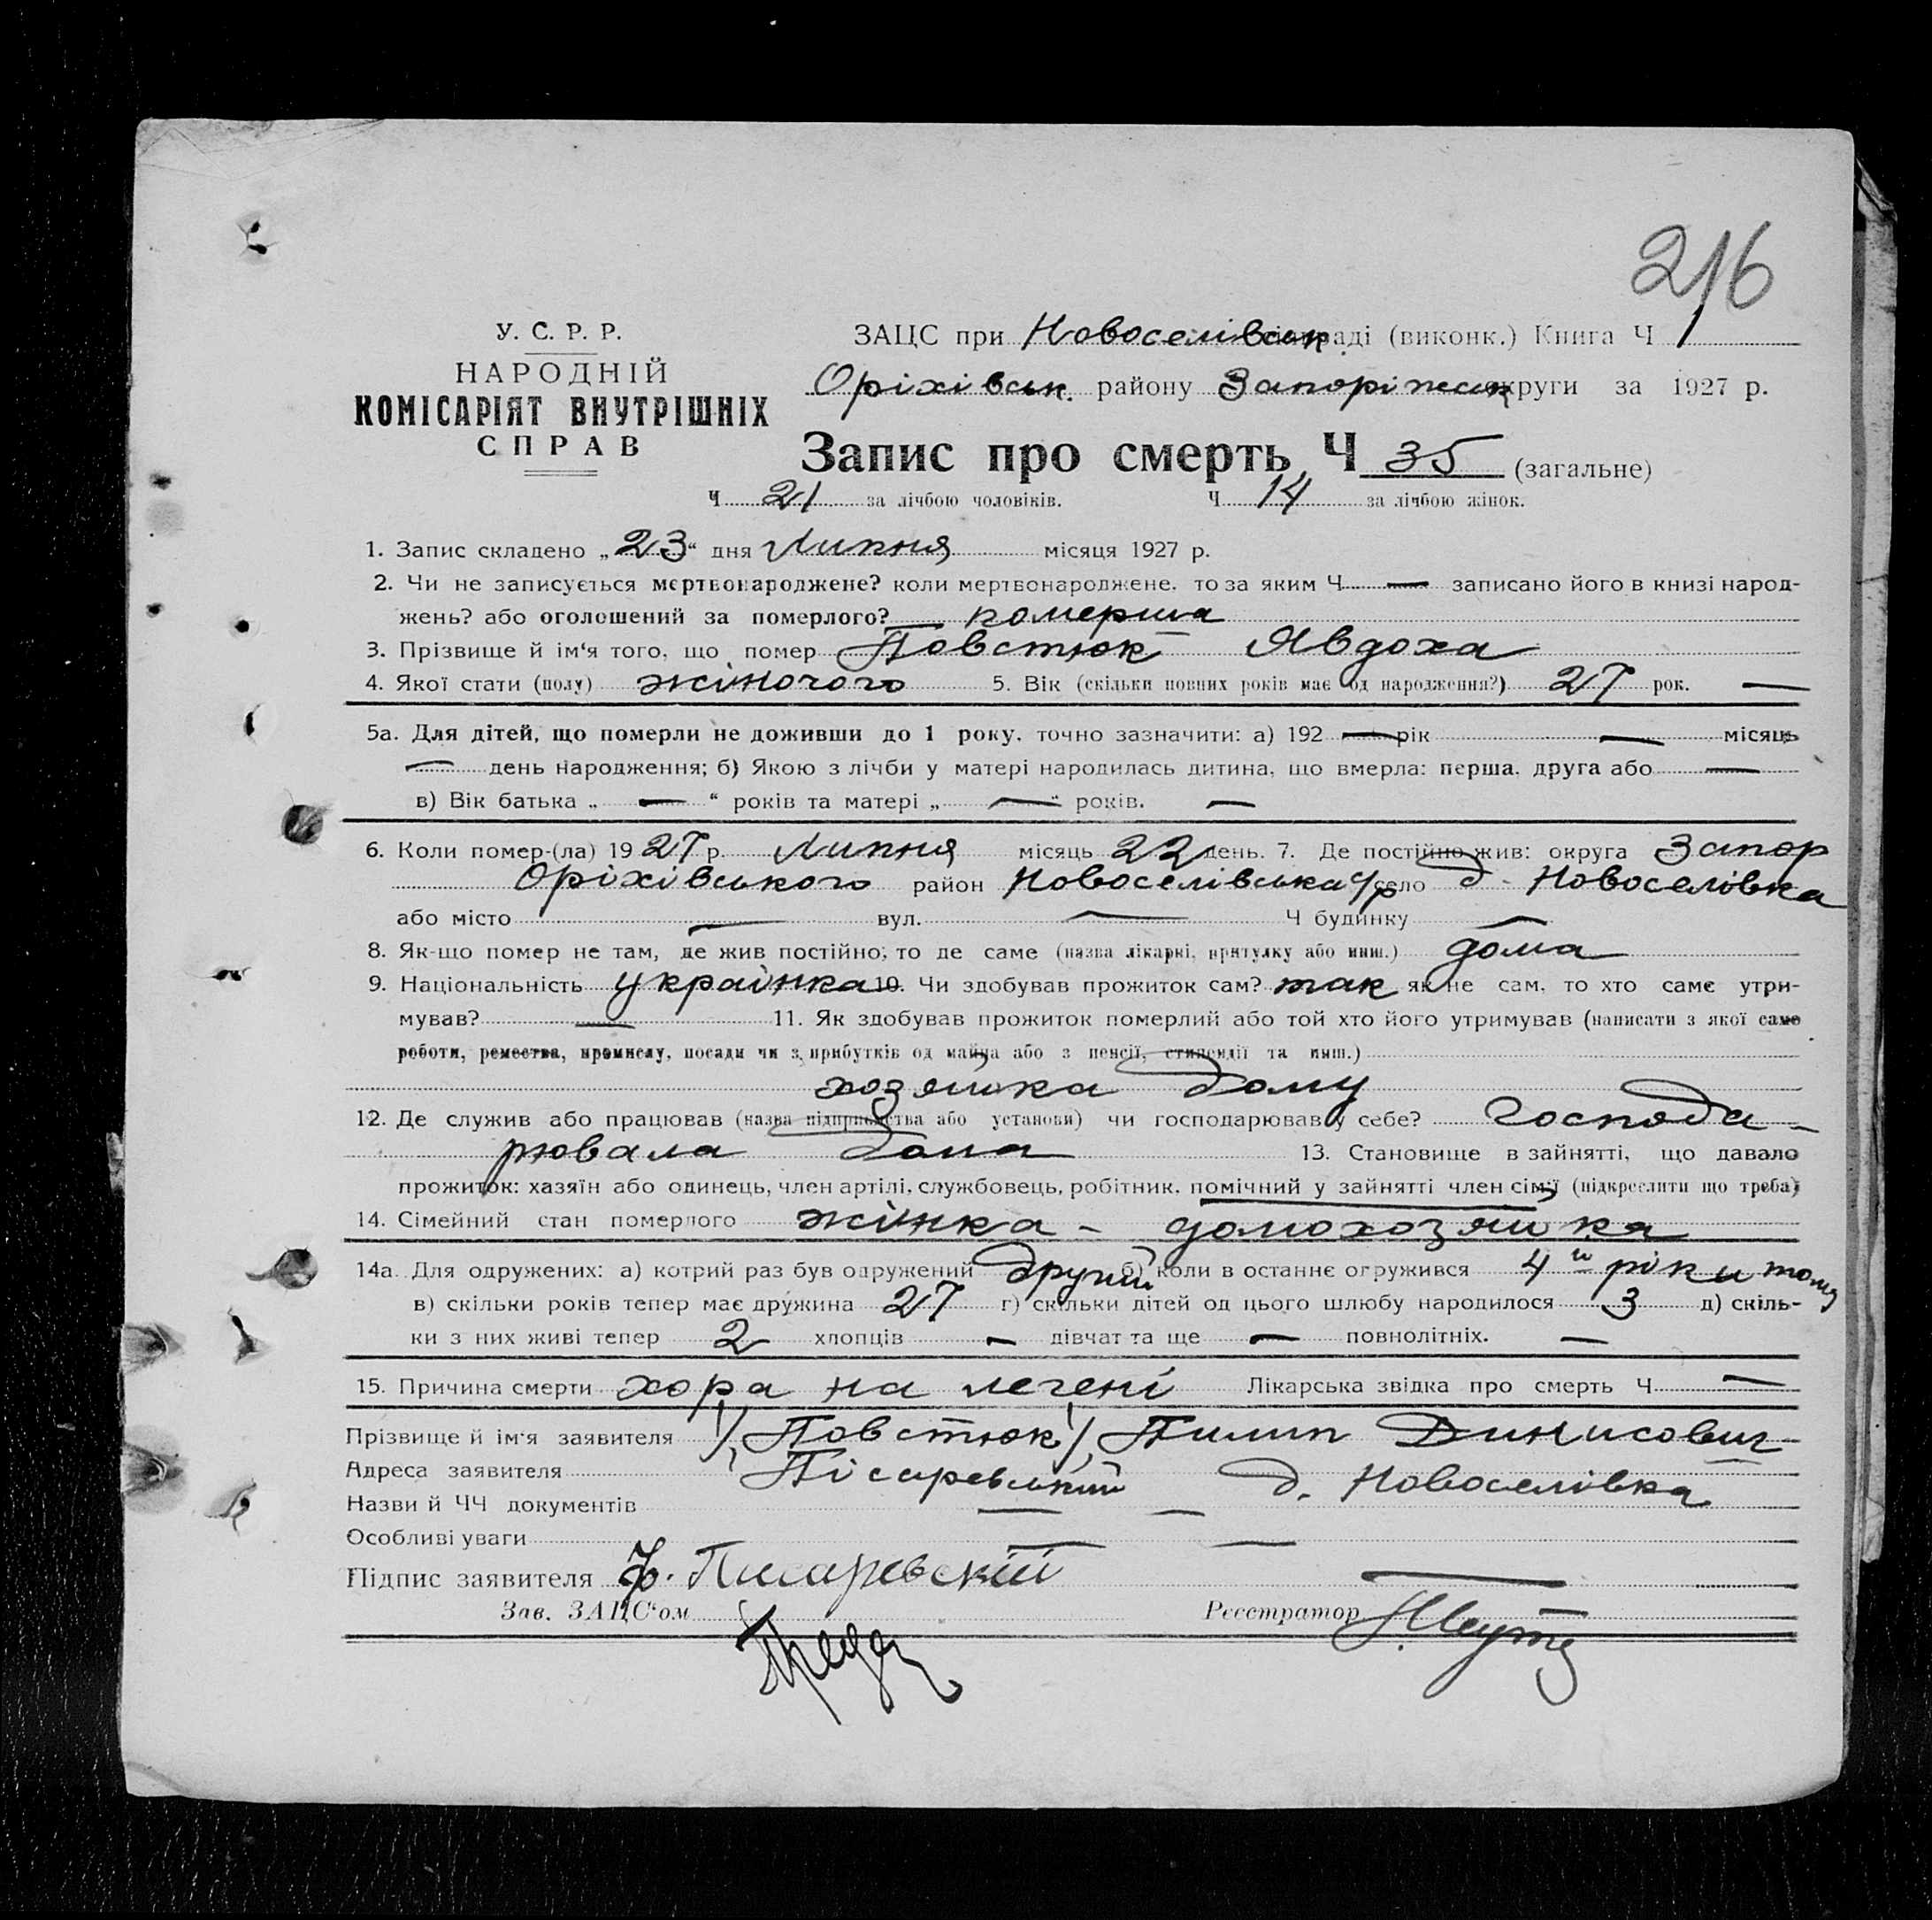 216
У. С. Р. Р.
НАРОДНІЙ
КОМІСАРІЯТ ВНУТРІШНІХ
СПРАВ
ЗАЦС при Новоселівськ раді (виконк.) Книга Ч 1
Оріхівськ. району Запоріжськ округи за 1927 р.
Запис про смерть Ч 35 (загальне)
Ч 21 за лічбою чоловіків. Ч 14 за лічбою жінок.
1. Запис складено „23“ дня Липня місяця 1927 р.
2. Чи не записується мертвонароджене? коли мертвонароджене, то за яким Ч — записано його в книзі народ-
жень? або оголошений за померлого? — померша
3. Прізвище й ім'я того, що помер Повстюк Явдоха
4. Якої стати (полу) жіночого 5. Вік (скільки повних років має од народження?) 27 рок. —
5а. Для дітей, що померли не доживши до 1 року, точно зазначити: а) 192 — рік — місяць
— день народження; б) Якою з лічби у матері народилась дитина, що вмерла: перша, друга або —
в) Вік батька „ — “ років та матері „ — “ років. —
6. Коли помер-(ла) 1927 р. Липня місяць 22 день. 7. Де постійно жив: округа Запор
Оріхівського район Новоселівська с/р село д. Новоселівка
або місто — вул. — Ч будинку —
8. Як-що помер не там, де жив постійно, то де саме (назва лікарні, притулку або инш.) дома
9. Національність українка 10. Чи здобував прожиток сам? так як не сам, то хто саме утри-
мував? — 11. Як здобував прожиток померлий або той хто його утримував (написати з якої саме
роботи, ремества, промислу, посади чи з прибутків од майна або з пенсії, стипендії та инш.)
хозяйка дому
12. Де служив або працював (назва підприємства або установи) чи господарював у себе? господа-
рювала дома 13. Становище в зайнятті, що давало
прожиток: хазяїн або одинець, член артілі, службовець, робітник, помічний у зайнятті член сім'ї (підкреслити що треба)
14. Сімейний стан померлого жінка - домохозяйка
14а. Для одружених: а) котрий раз був одружений другий б) коли в останнє огружився 4 й ріки тому
в) скільки років тепер має дружина 27 г) скільки дітей од цього шлюбу народилося 3 д) скіль-
ки з них живі тепер 2 хлопців — дівчат та ще — повнолітніх. —
15. Причина смерти хора на легені Лікарська звідка про смерть Ч —
Прізвище й ім'я заявителя /Повстюк/ Пилип Динисович
Адреса заявителя Пісаревський д. Новоселівка
Назви й ЧЧ документів — —
Особливі уваги — —
Підпис заявителя Ф. Писаревскій —
Зав. ЗАЦС'ом Реєстратор